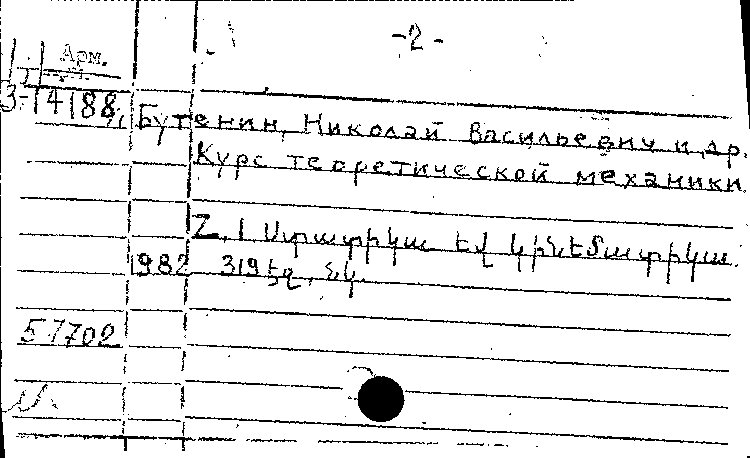 -2-
Арм.
3-14188
Бутенин, Николай Васильевич и др.
Курс теоретической механики
Հ. 1 Ստատիկա եվ կինեմատիկա.
1982 319 էջ, նկ.
51702